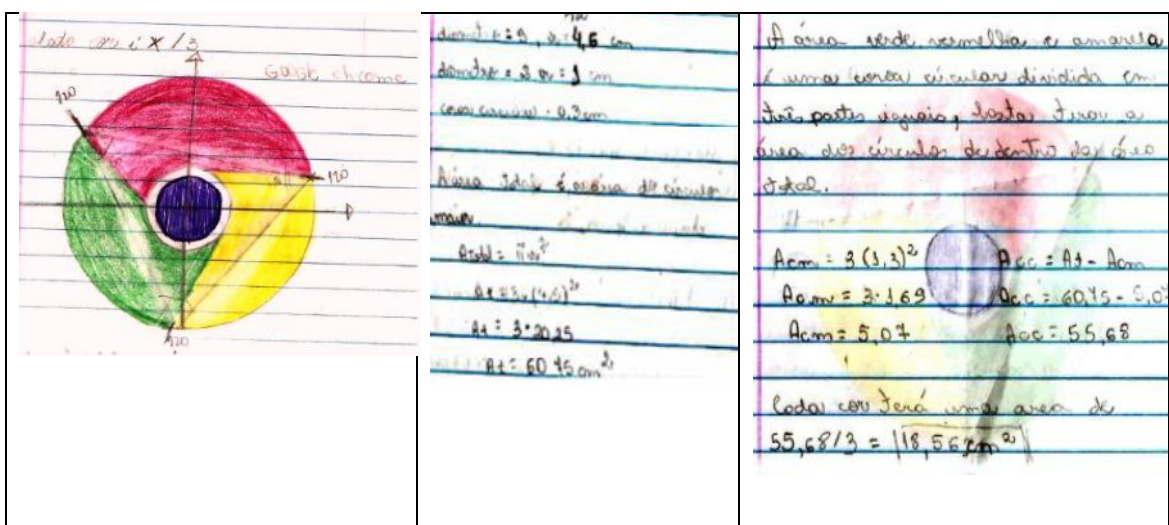 Google chrome
120
120
120
diâmetro = 9, r = 4,5 cm
diâmetro = 2 r = 1 cm
coroa circular = 0,3 cm
A área total é a área do círculo
maior.
Atotal = πr²
At = 3.(4,5)²
At = 3*20,25
At = 60,75 cm²
A área verde, vermelha e amarela
é uma coroa circular dividida em
três partes iguais, basta tirar a
área dos círculos de dentro da área
total.
Acm = 3(1,3)²
Acc = At - Acm
Acm = 3*1,69
Acc = 60,75 - 5,07
Acm = 5,07
Acc = 55,68
Cada cor terá uma area de
55,68/3 = 18,56 cm²